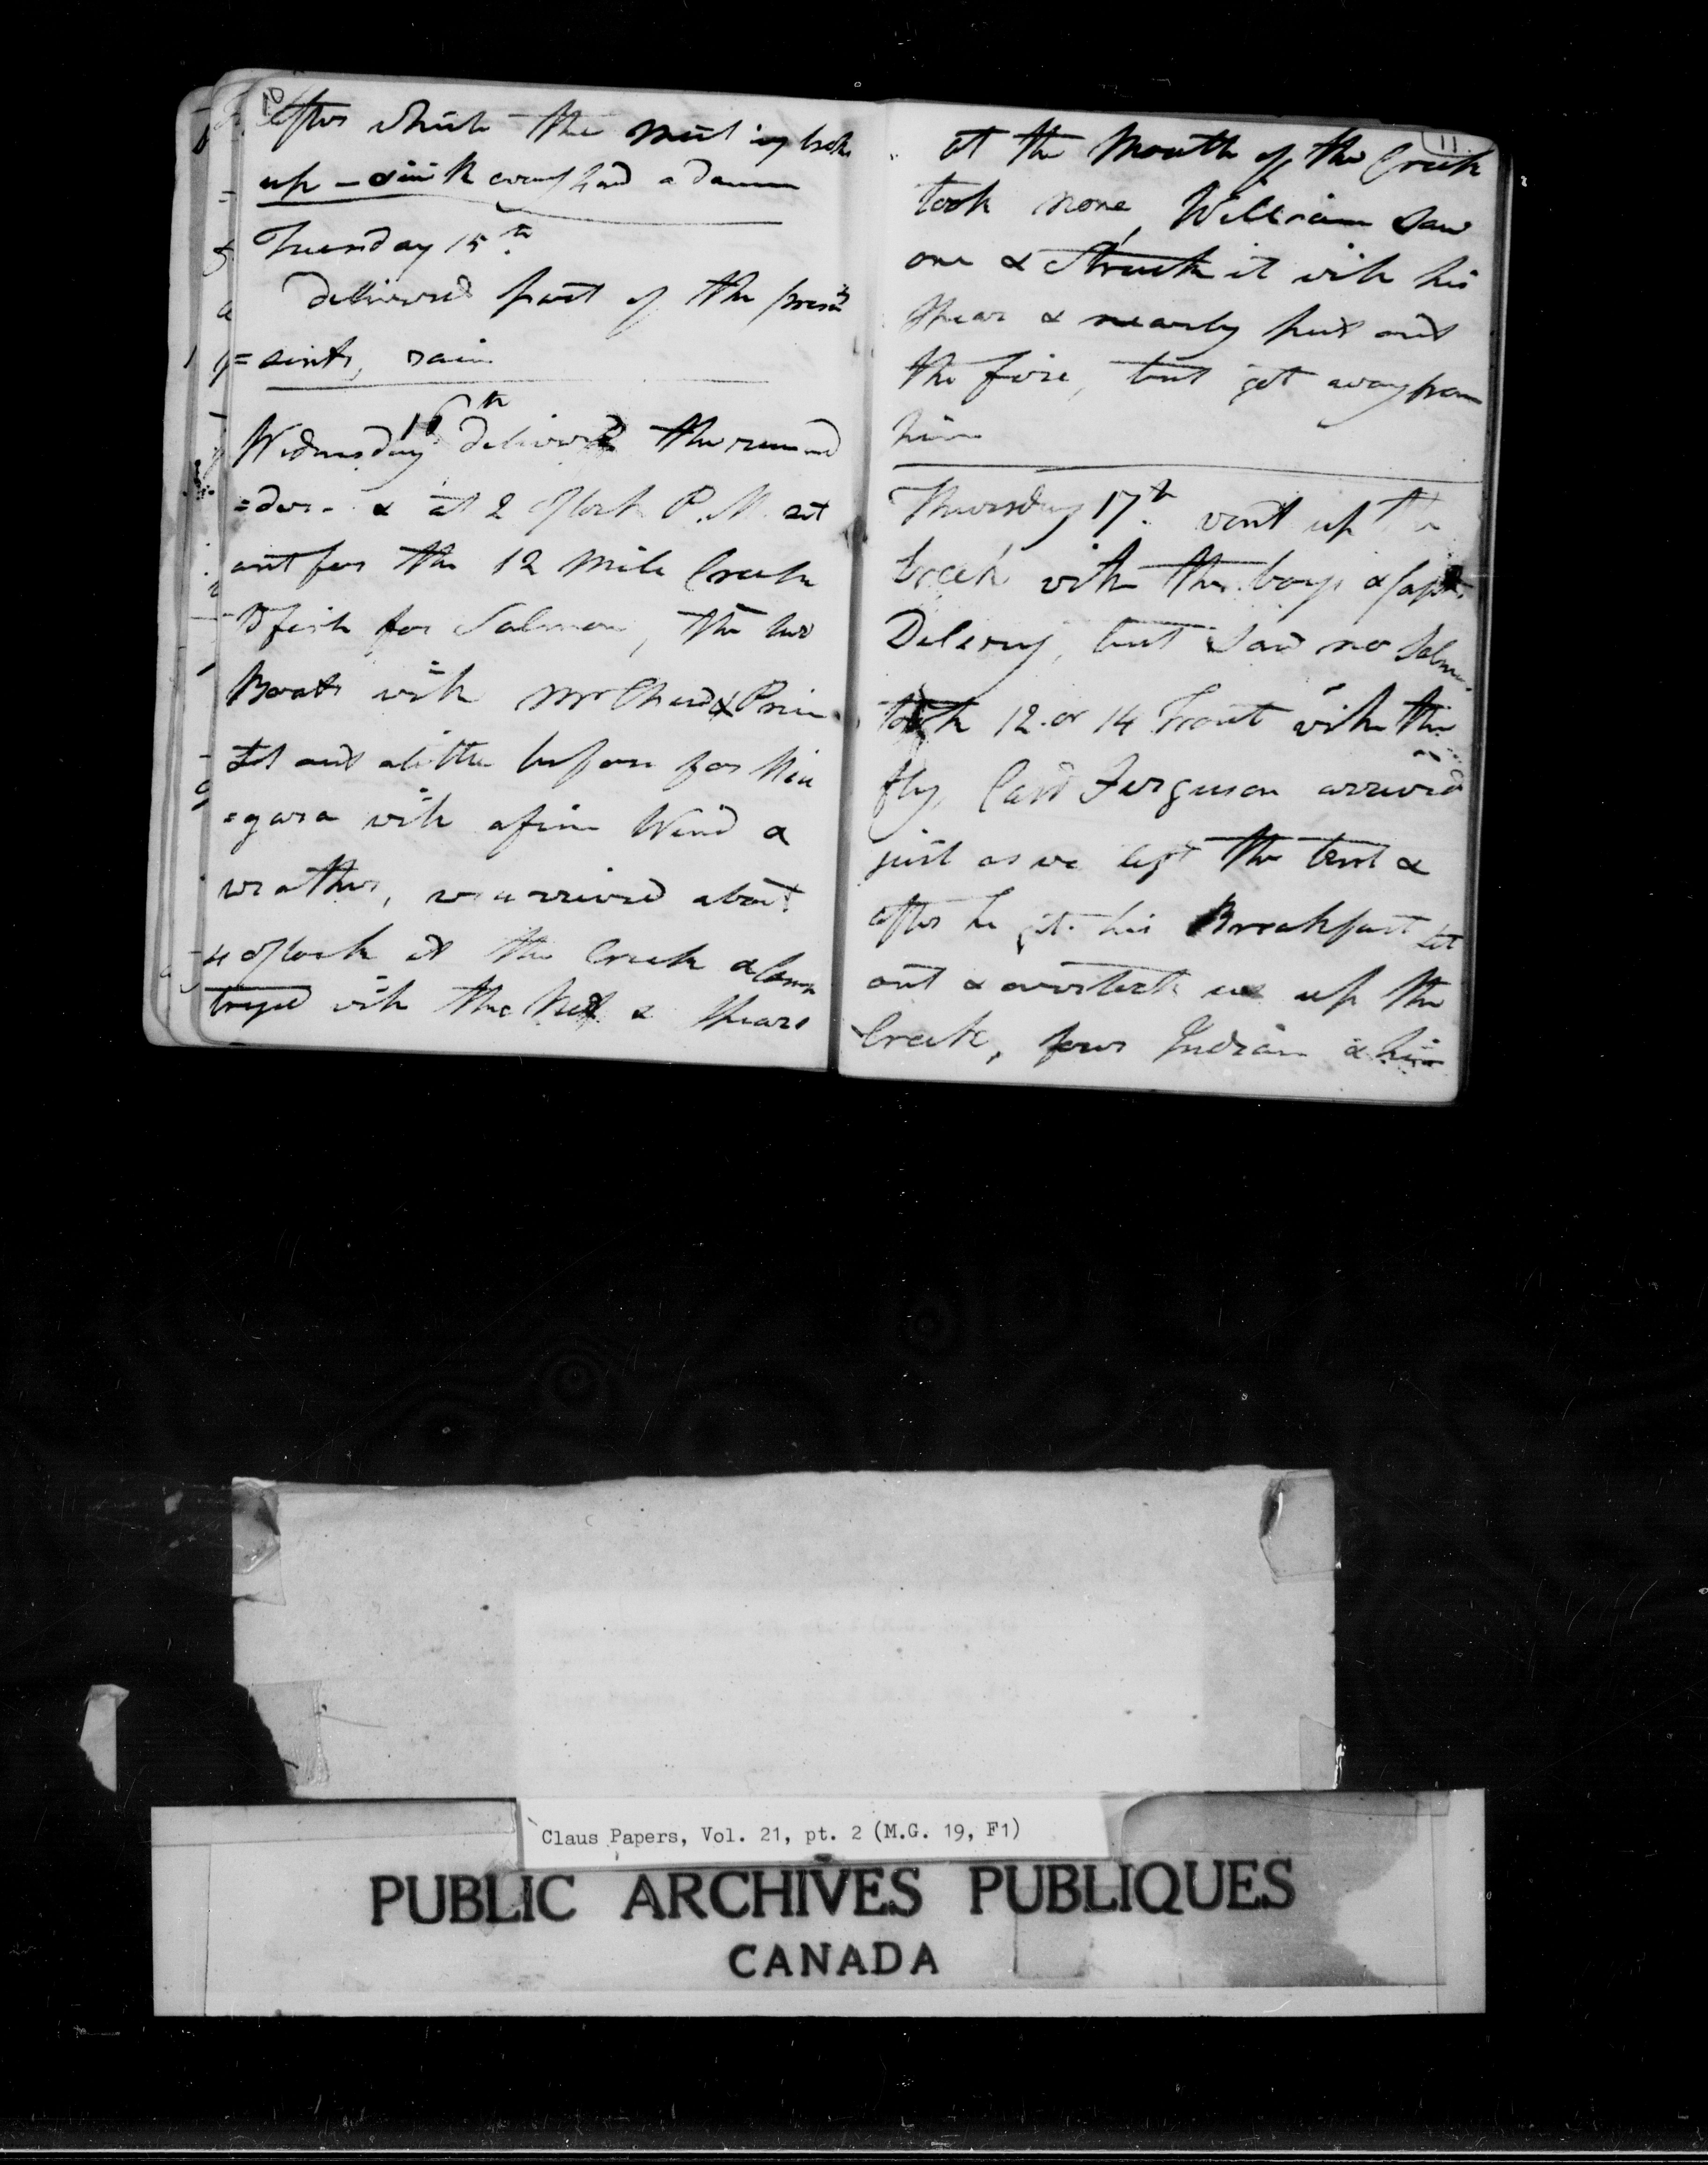 10
After which the meeting broke
up - & in the eveng had a dance
Tuesday 15th
delivered part of the pres
=ents, rain
Wednesday 16th delivered the remain
=der - & at 2 oClock P.M. set
out for the 12 Mile Creek
to fish for Salmon, the two
Boats with Mr Chew & Price
Set out a little before for Nia
=gara with a fine Wind &
weather, we arrived about
4 oClock at the Creek &
tryed with the Net & Spears
11
at the Mouth of the Creek
took none, William Saw
one & Struck it with his
Spear & nearly put out
the fire, but got away from
him
Thursday 17th went up the
Creek with the boys & Capt.
but Saw no Salmon
took 12 or 14 Trout with the
fly, Capt Ferguson arrived
just as we left the tent &
after he got his Breakfast Set
out & overtook us up the
Creek, four Indian & him
Claus Papers, Vol. 21, pt. 2 (M.G. 19, F1)
PUBLIC ARCHIVES PUBLIQUES
CANADA